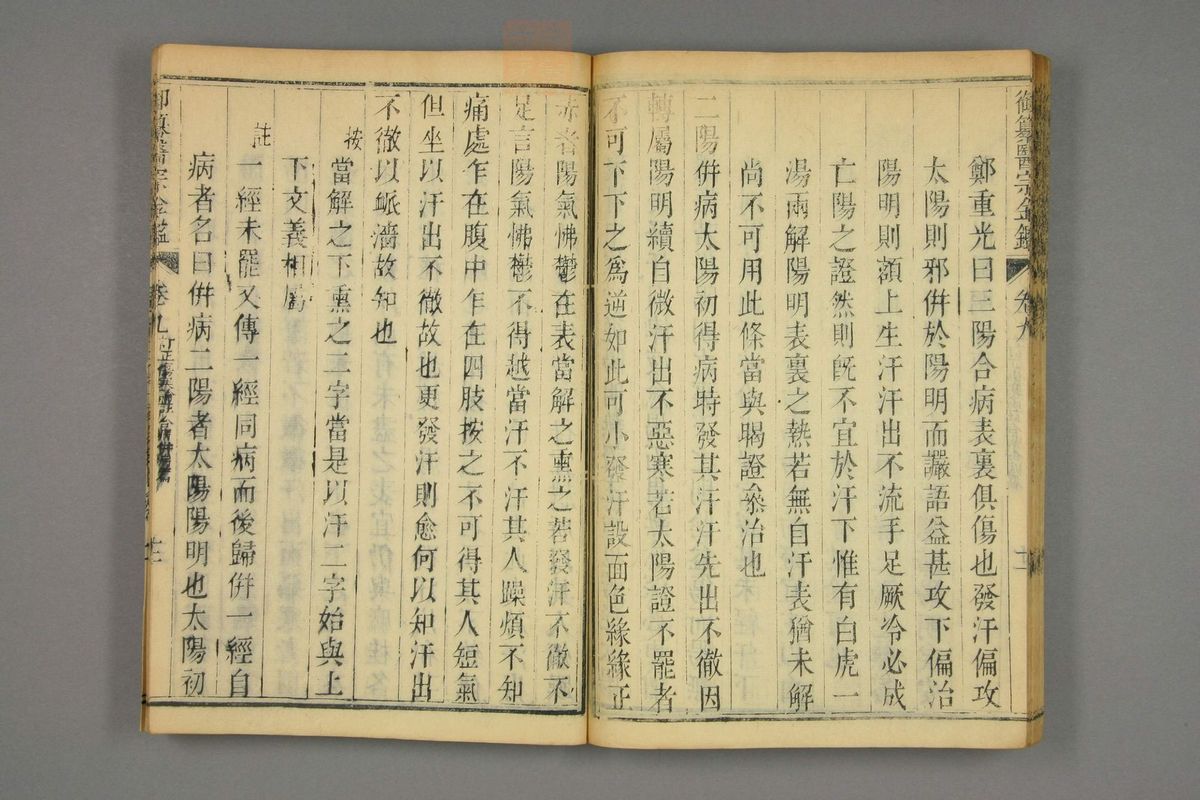 御纂醫宗金鑑 卷九
鄭重光曰三陽合病表裏俱傷也發汗偏攻
太陽則邪併於陽明而讝語益甚攻下偏治
陽明則額上生汗汗出不流手足厥冷必成
亡陽之證然則旣不宜於汗下惟有白虎一
湯兩解陽明表裏之熱若無自汗表猶未解
尚不可用此條當與暍證叅治也
二陽併病太陽初得病時發其汗汗先出不徹因
轉屬陽明續自微汗出不惡寒若太陽證不罷者
不可下下之爲逆如此可小發汗設面色緣緣正
赤者陽氣怫鬱在表當解之熏之若發汗不徹不
足言陽氣怫鬱不得越當汗不汗其人躁煩不知
痛處乍在腹中乍在四肢按之不可得其人短氣
但坐以汗出不徹故也更發汗則愈何以知汗出
不徹以脈濇故知也
按 當解之下熏之二字當是以汗二字始與上
下文義相屬
註 一經未罷又傳一經同病而後歸併一經自
病者名曰併病二陽者太陽陽明也太陽初
御纂醫宗金鑑 卷九